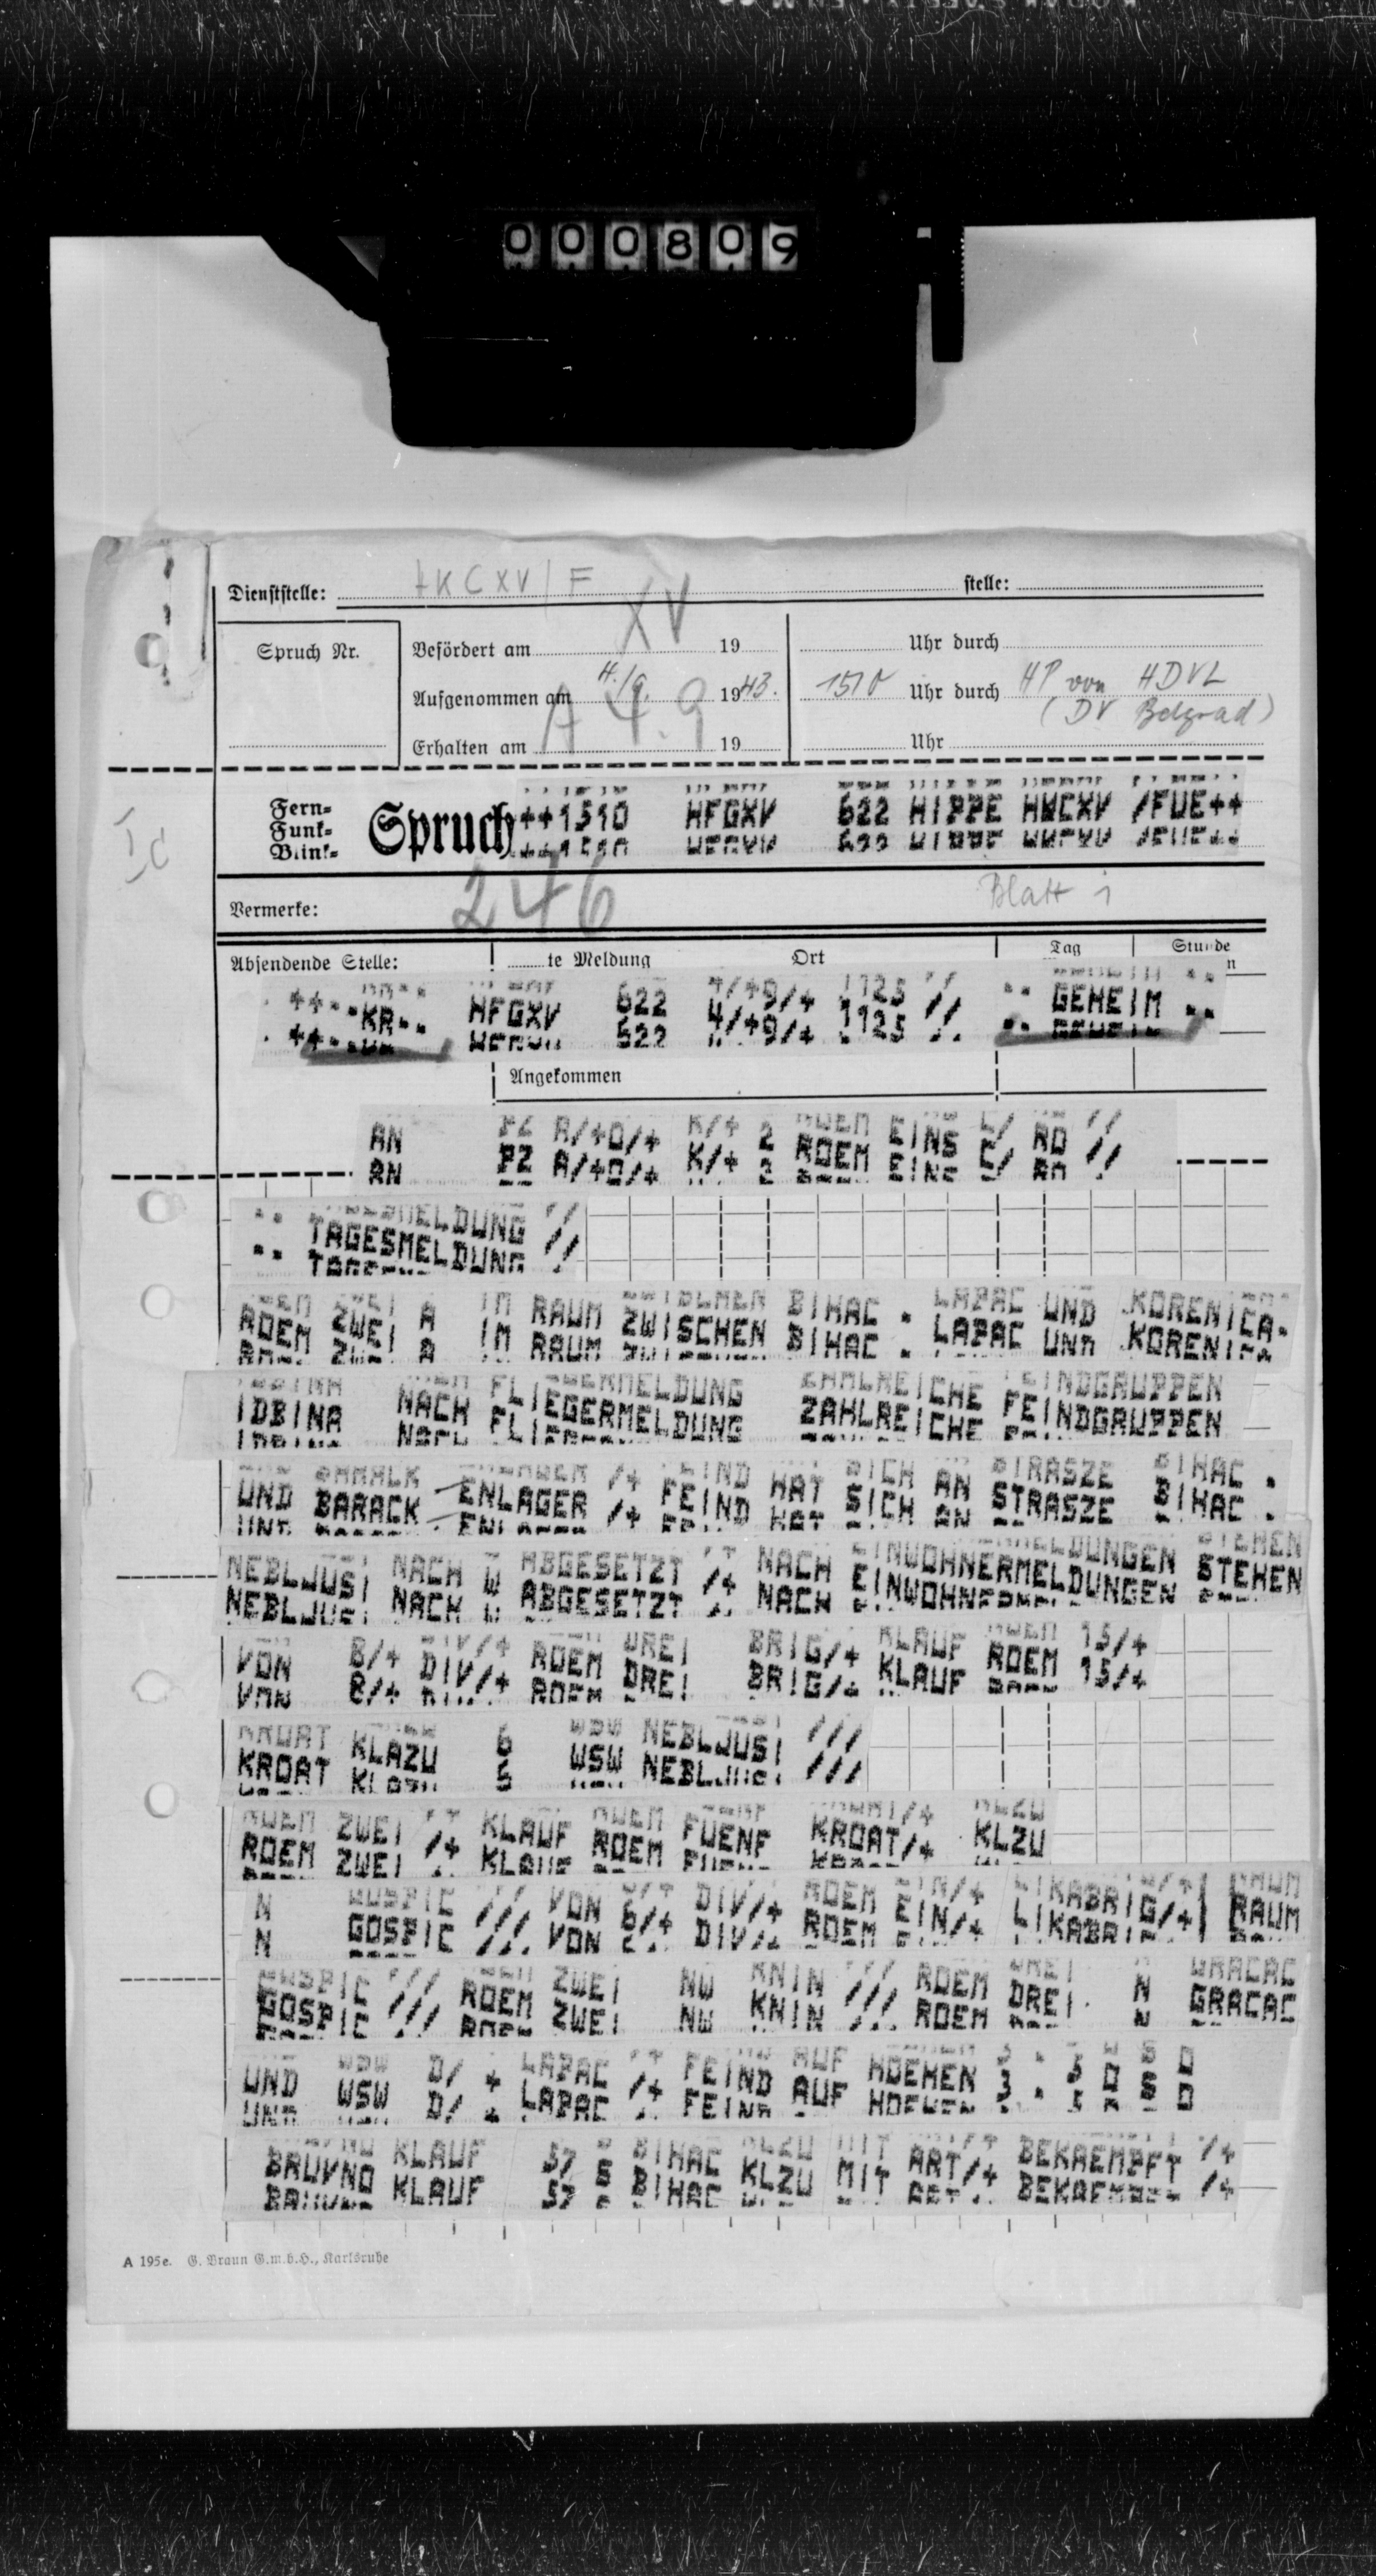 000809
Dienststelle: HKCXV/F stelle:
XV
Spruch Nr.
Befördert am 19 Uhr durch
Aufgenommen am 4./9. 1943. 1510 Uhr durch HP von HDVL
(DV Belgrad)
A 4.9
Erhalten am 19 Uhr
Fern-
Funk-
Blink-
Spruch ++1510 HFGXV 622 HIPPE HWCXV /FUE++
Ic
246
Blatt 1
Vermerke:
Absendende Stelle: te Meldung Ort Tag Stunde
++--KR-- HFGXV 622 4/+9/+ 1125 // -- GEHEIM --
Angekommen
AN PZ A/+O/+ K/+ 2 ROEM EINS C/ RO //
-- TAGESMELDUNG //
ROEM ZWEI A IM RAUM ZWISCHEN BIHAC - LAPAC UND KORENICA-
IDBINA NACH FLIEGERMELDUNG ZAHLREICHE FEINDGRUPPEN
UND BARACKENLAGER /+ FEIND HAT SICH AN STRASZE BIHAC -
NEBLJUSI NACH W ABGESETZT /+ NACH EINWOHNERMELDUNGEN STEHEN
VON 8/+ DIV/+ ROEM DREI BRIG/+ KLAUF ROEM 15/+
KROAT KLAZU 6 WSW NEBLJUSI ///
ROEM ZWEI /+ KLAUF ROEM FUENF KROAT/+ KLZU
N GOSPIC /// VON 6/+ DIV/+ ROEM EIN/+ LIKABRIG/+ RAUM
GOSPIC /// ROEM ZWEI NW KNIN /// ROEM DREI N GRACAC
UND WSW D/ + LAPAC /+ FEIND AUF HOEHEN 3 - 5 O S O
BRUVNO KLAUF 37 S BIHAC KLZU MIT ART/+ BEKAEMPFT /+
A 195e. G. Braun G.m.b.H., Karlsruhe